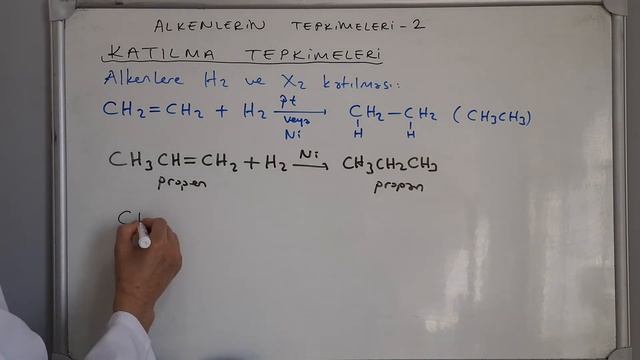 ALKENLERİN TEPKİMELERİ-2
KATILMA TEPKİMELERİ
Alkenlere H2 ve X2 katılması:
CH2=CH2 + H2 Pt veya Ni → CH2-CH2 (CH3CH3)
H H
CH3CH=CH2+H2 Ni → CH3CH2CH3
propen propan
CH